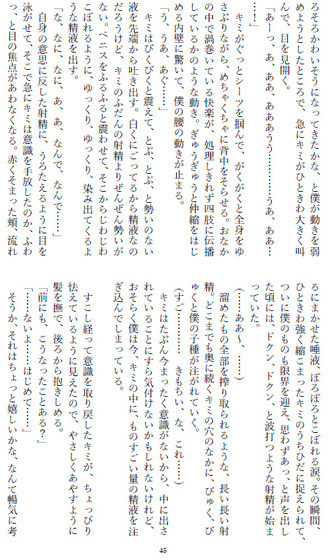 ろそろかわいそうになってきたかな、と僕が動きを弱
めようとしたところで、急にキミがひときわ大きく叫
んで、目を見開く。
「あーっ、あ、ああ、ああああうう……うあ、ああ…
…！」
キミがぐっとシーツを掴んで、がくがくと全身をゆ
さぶりながら、めちゃくちゃに背中をそらせる。おなか
の中で渦巻いている快楽が、処理しきれず四肢に伝播
しているかのような動き。ぎゅうぎゅうと伸縮をはじ
める内壁に驚いて、僕の腰の動きが止まる。
「う、うあ、あ、……」
キミはびくびくと震えて、とぷ、とぷ、と勢いのない
液を先端から吐き出す。白くにごってるから精液なの
だろうけど、キミのふだんの射精よりぜんぜん勢いが
ない。ペニスをふるふると震わせて、そこからじわじわ
こぼれるように、ゆっくり、ゆっくり、染み出てくるよ
うな精液を出す。
「な、なに、なに、あ、あ、なんで、なんで……」
自身の意思に反した射精に、うろたえるように目を
泳がせて、そこで急にキミは意識を手放したのか、ふわ
っと目の焦点があわなくなる。赤くそまった頬、流れ
るにまかせた唾液、ぼろぼろとこぼれる涙。その瞬間、
ひときわ強く縮こまったキミのうちひだに捉えられて、
ついに僕のものも限界を迎え、思わずあっ、と声を出し
た頃には、ドクン、ドクン、と波打つような射精が始ま
っていた。
（……ああ～、……）
溜めたもの全部を搾り取られるような、長い長い射
精。どこまでも奥に続くキミの穴のなかに、びゅく、び
ゅくと僕の子種が注がれていく。
（すご……、きもちい、な、これ……）
キミはたぶん今まったく意識がないから、中に出さ
れていることにすら気付けないかもしれないけれど、
おそらく僕は今、キミの中に、ものすごい量の精液を注
ぎ込んでしまっている。
すこし経って意識を取り戻したキミが、ちょっぴり
怯えているように見えたので、やさしくあやすように
髪を撫で、後ろから抱きしめる。
「前にも、こうなったことある？」
「……ないよ……はじめて……」
そうか、それはちょっと嬉しいかな、なんて暢気に考
45